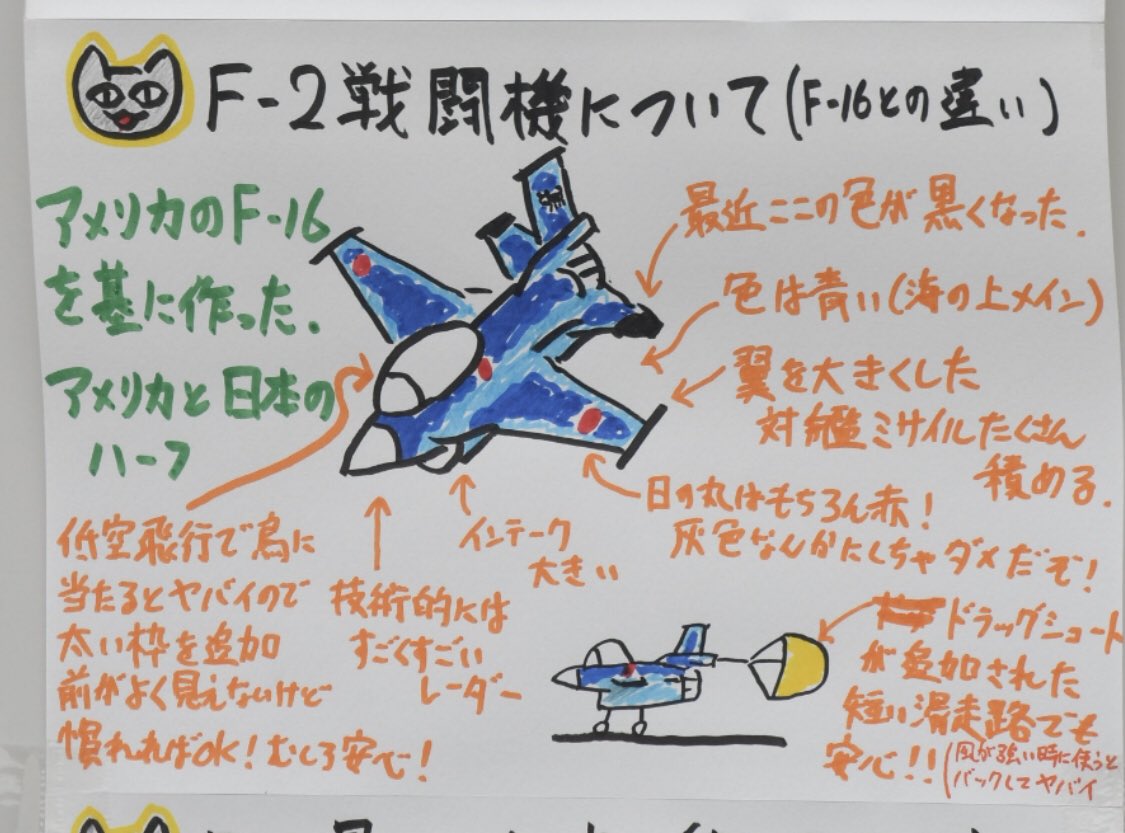 F-2戦闘機について(F-16との違い)
アメリカのF-16
を基に作った.
アメリカと日本の
ハーフ
最近ここの色が黒くなった.
色は青い(海の上メイン)
翼を大きくした
対艦ミサイルたくさん
積める.
日の丸はもちろん赤!
灰色なんかにしちゃダメだぞ!
インテーク
大きい
技術的には
すごくすごい
レーダー
低空飛行で鳥に
当たるとヤバイので
太い枠を追加
前がよく見えないけど
慣れればOK!むしろ安心!
ドラッグシュート
が追加された
短い滑走路でも
安心!!
(風が強い時に使うと
バックしてヤバイ